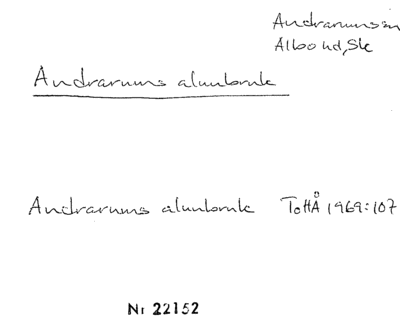 Andrarums sn
Albo hd, Sk
Andrarums alunbruk
Andrarums alunbruk ToHÅ 1969:107
Nr 22152